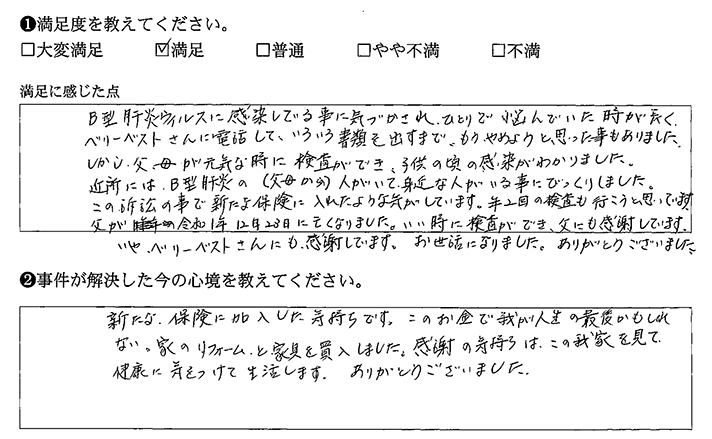 ❶満足度を教えてください。
□大変満足 ☑満足 □普通 □やや不満 □不満
満足に感じた点
B型肝炎ウィルスに感染している事に気づかされ、ひとりで悩んでいた時が長く、
ベリーベストさんに電話して、いろいろ書類を出すまで、もうやめようと思った事もありました。
しかし、父、母が元気な時に検査ができ、子供の頃の感染がわかりました。
近所には、B型肝炎の(父母から)人がいて、身近な人がいる事にびっくりしました。
この訴訟の事で新たな保険に入れたような気がしています。年2回の検査も行こうと思っています
父が令和1年12月23日に亡くなりました。いい時に検査ができ、父にも感謝しています。
いや、ベリーベストさんにも、感謝しています。お世話になりました。ありがとうございました
❷事件が解決した今の心境を教えてください。
新たな、保険に加入した気持ちです。このお金で我が人生の最後かもしれ
ない。家のリフォームと家具を買入しました。感謝の気持ちは、この我家を見て、
健康に気をつけて生活します。ありがとうございました。